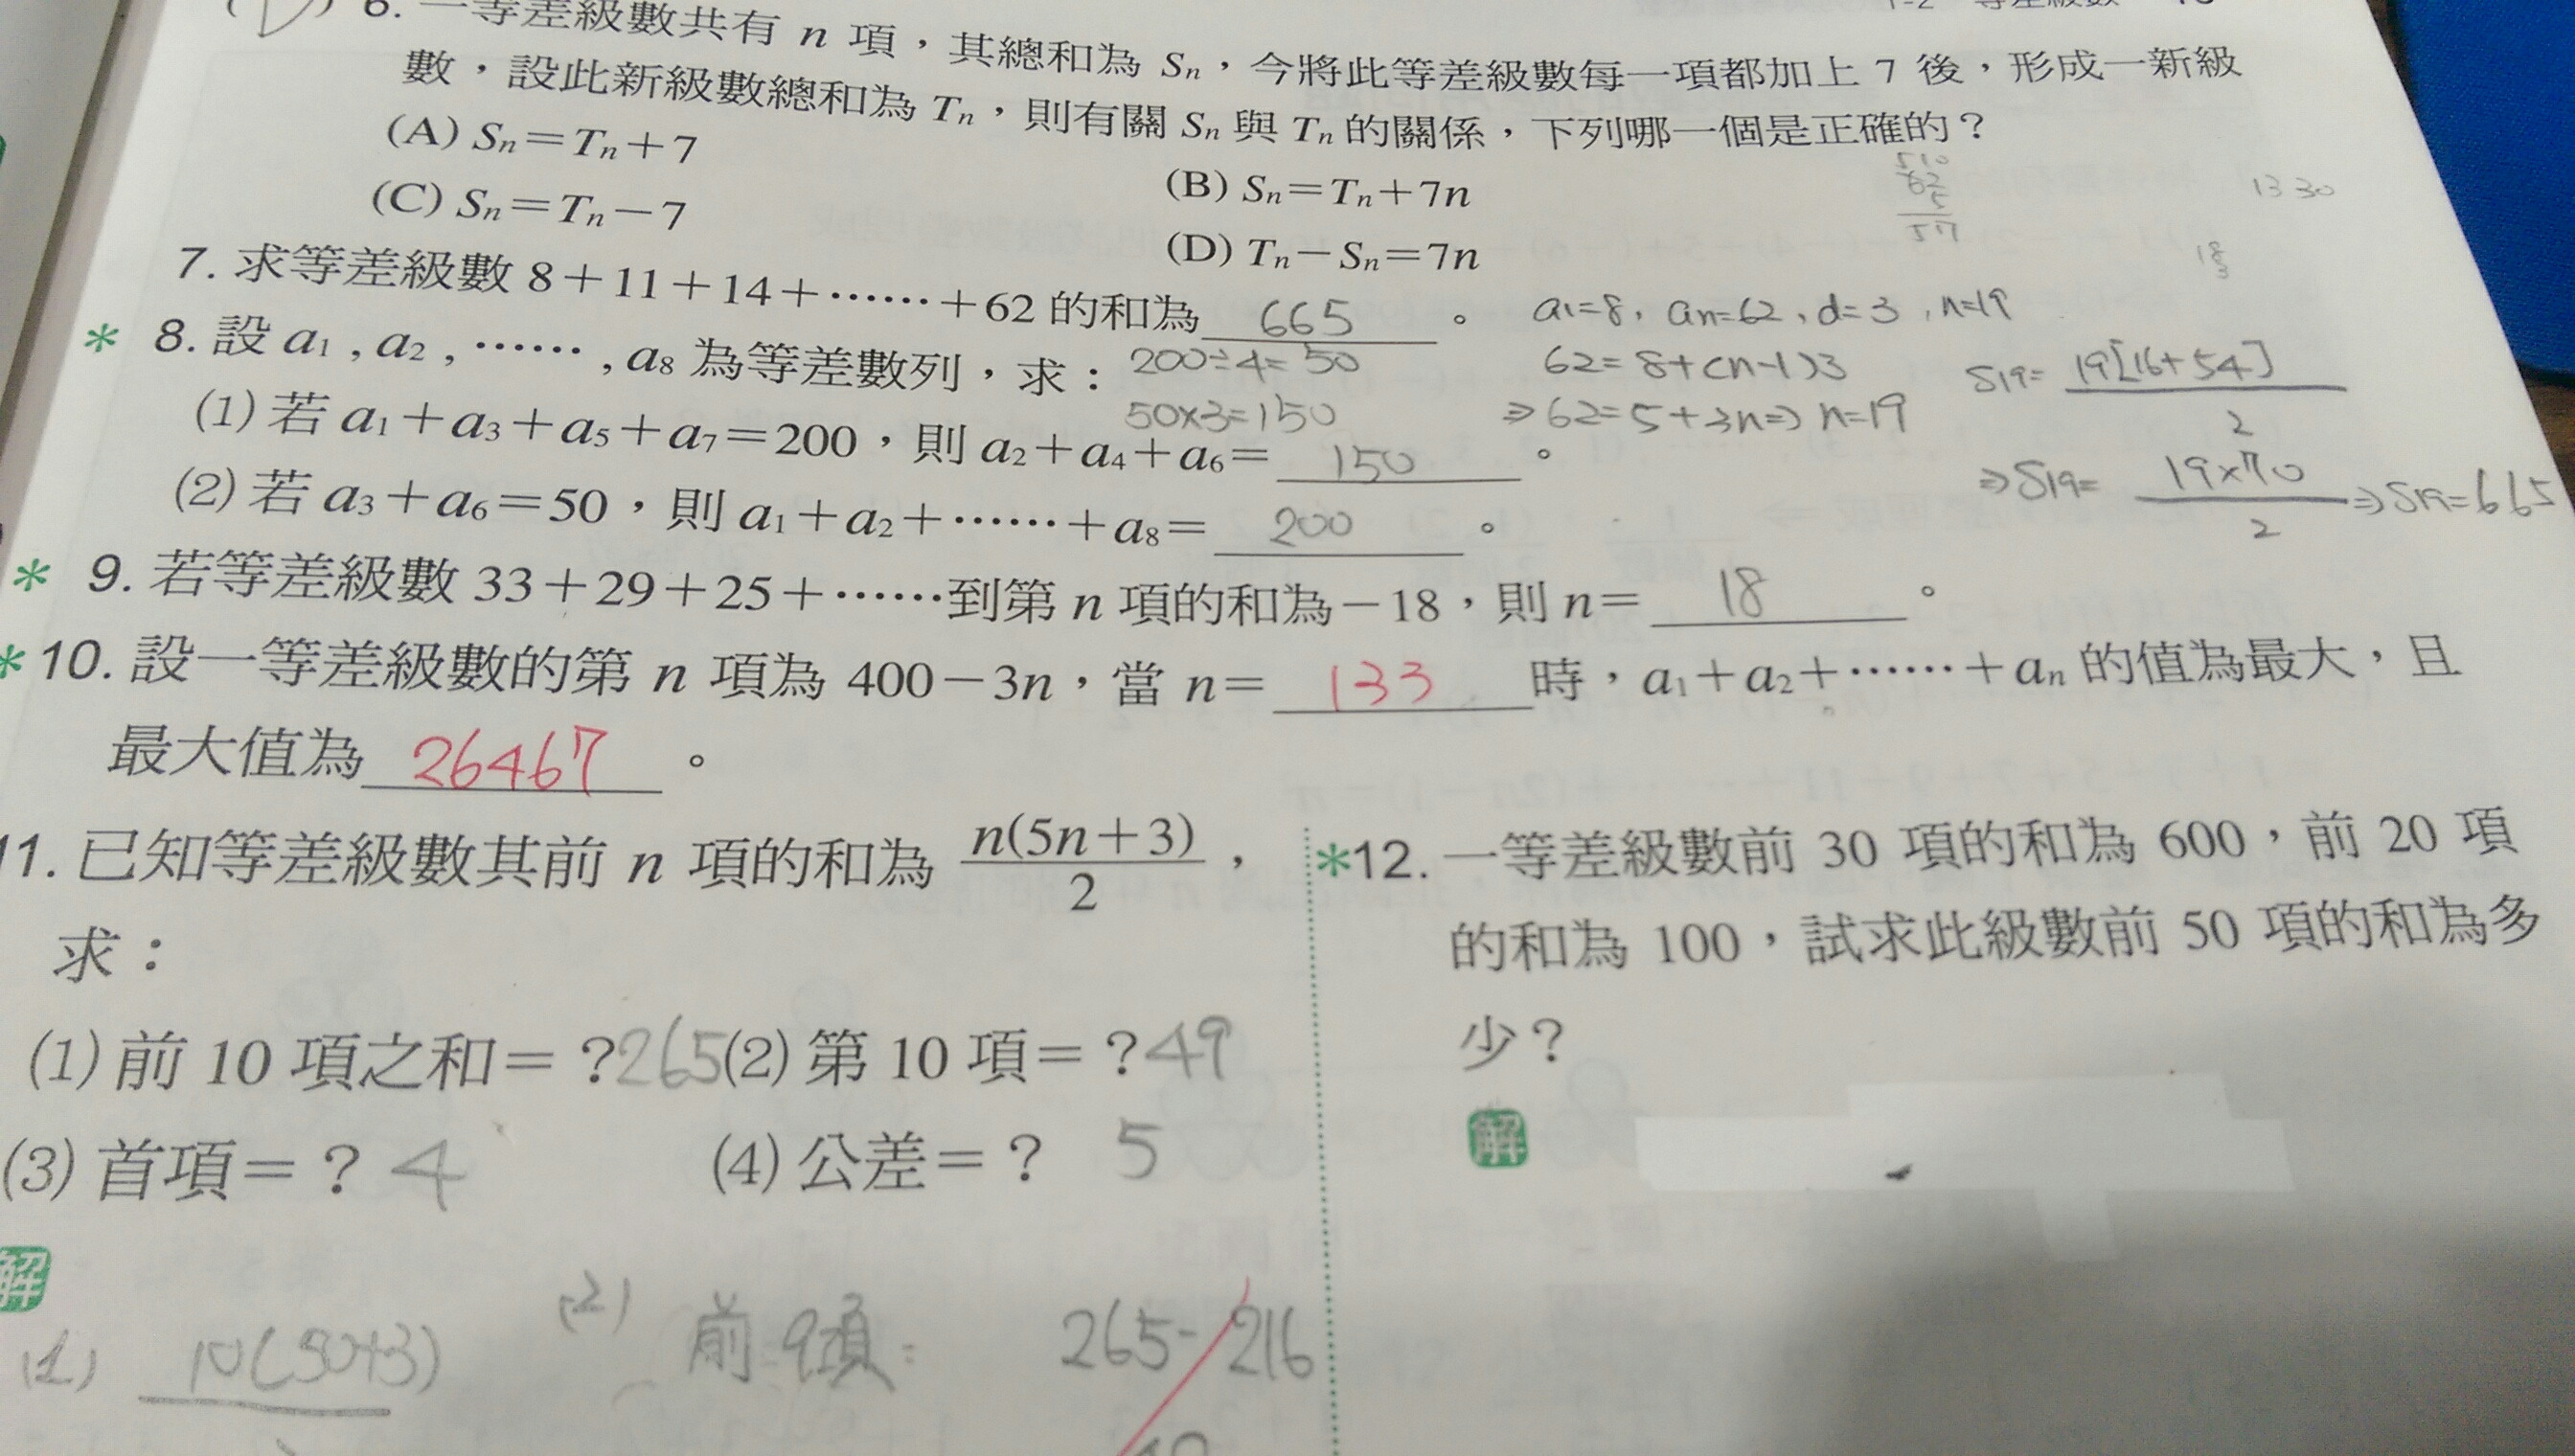 6. 一等差級數共有 n 項，其總和為 Sn，今將此等差級數每一項都加上 7 後，形成一新級
數，設此新級數總和為 Tn，則有關 Sn 與 Tn 的關係，下列哪一個是正確的？
(A) Sn=Tn+7
(B) Sn=Tn+7n
(C) Sn=Tn−7
(D) Tn−Sn=7n
510
62
5
57
13 30
18
3
7. 求等差級數 8+11+14+……+62 的和為 665 。
a1=8, an=62, d=3, n=19
62=8+(n-1)3
⇒62=5+3n⇒n=19
S19= 19[16+54]/2
⇒S19= 19×70/2 ⇒S19=665
* 8. 設 a1 , a2 , …… , a8 為等差數列，求：
200÷4=50
50×3=150
(1) 若 a1+a3+a5+a7=200，則 a2+a4+a6= 150 。
(2) 若 a3+a6=50，則 a1+a2+……+a8= 200 。
* 9. 若等差級數 33+29+25+……到第 n 項的和為−18，則 n= 18 。
* 10. 設一等差級數的第 n 項為 400−3n，當 n= 133 時，a1+a2+……+an 的值為最大，且
最大值為 26467 。
11. 已知等差級數其前 n 項的和為 n(5n+3)/2，
求：
(1) 前 10 項之和=？265 (2) 第 10 項=？49
(3) 首項=？4 (4) 公差=？5
解
(1) 10(50+3)
(2) 前9項： 265-216
*12. 一等差級數前 30 項的和為 600，前 20 項
的和為 100，試求此級數前 50 項的和為多
少？
解